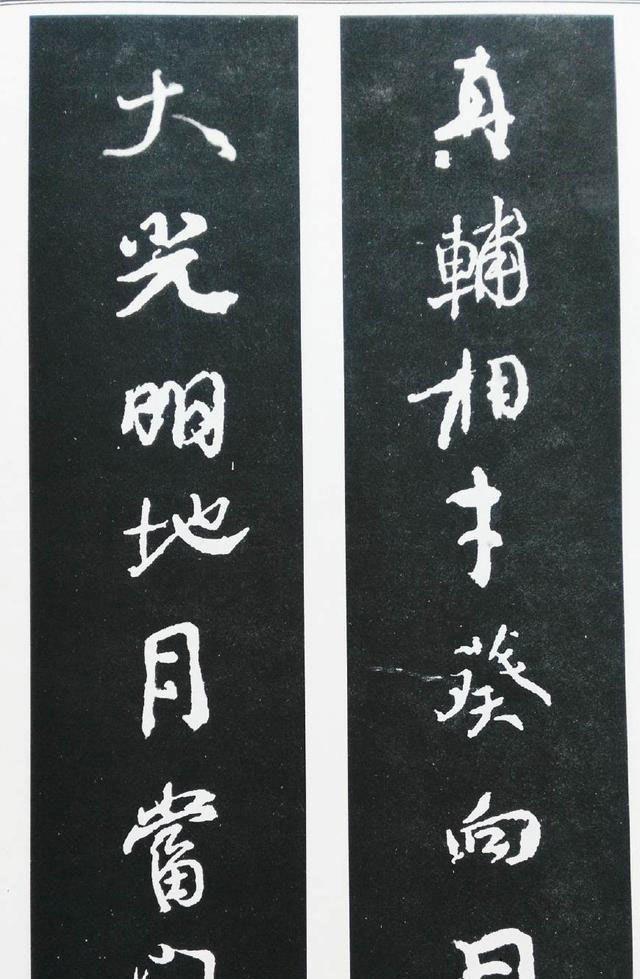 真輔相才葵向日
大光明地月當